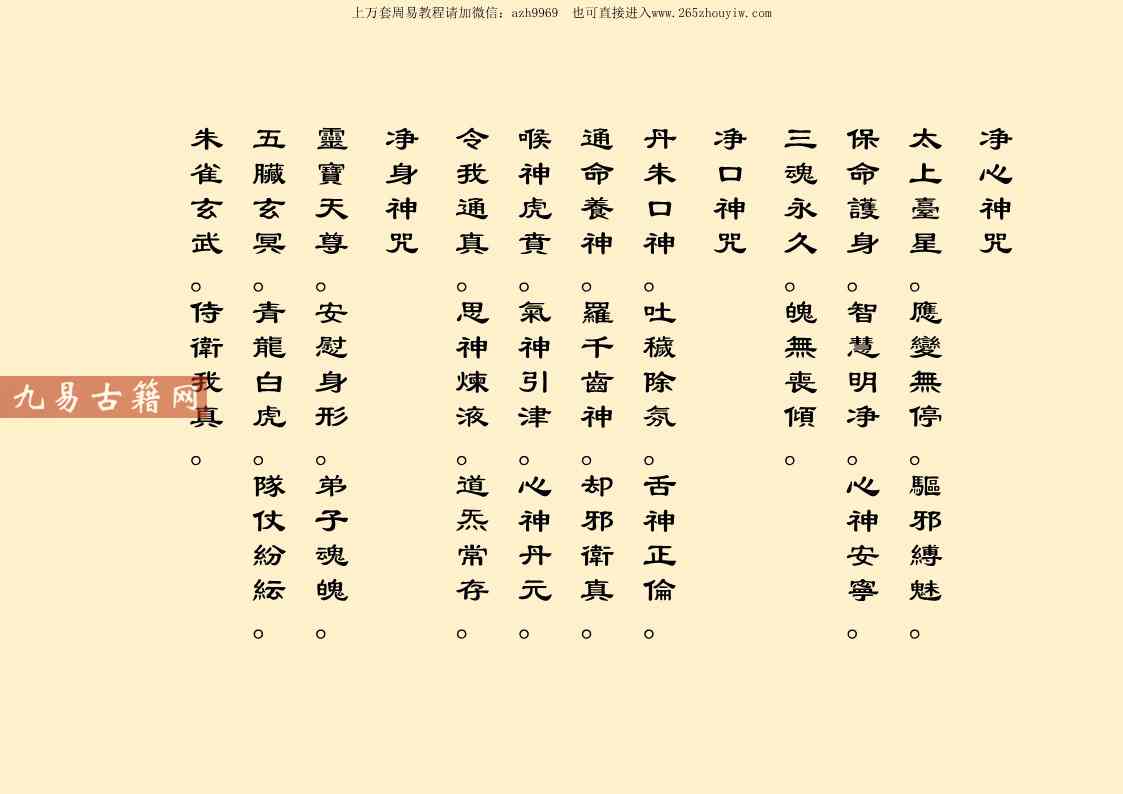 上万套周易教程请加微信：azh9969 也可直接进入www.265zhouyiw.com
净心神咒
太上臺星。應變無停。驅邪縛魅。
保命護身。智慧明净。心神安寧。
三魂永久。魄無喪傾。
净口神咒
丹朱口神。吐穢除氛。舌神正倫。
通命養神。羅千齒神。却邪衛真。
喉神虎賁。氣神引津。心神丹元。
令我通真。思神煉液。道炁常存。
净身神咒
靈寶天尊。安慰身形。弟子魂魄。
五臟玄冥。青龍白虎。隊仗紛紜。
朱雀玄武。侍衛我真。
九易古籍网